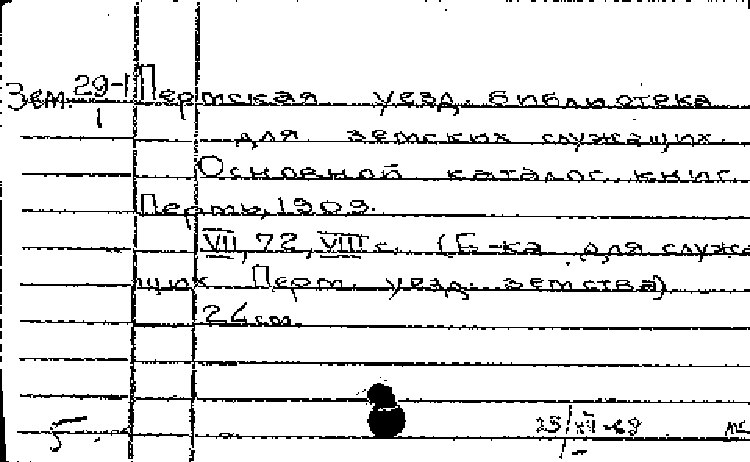 Зем. 29-1
1
Пермская уезд. библиотека
для земских служащих.
Основной каталог книг.
Пермь, 1909.
VII, 72, VIII с. (Б-ка для служа
щих Перм. уезд. земства)
24 см.
5.